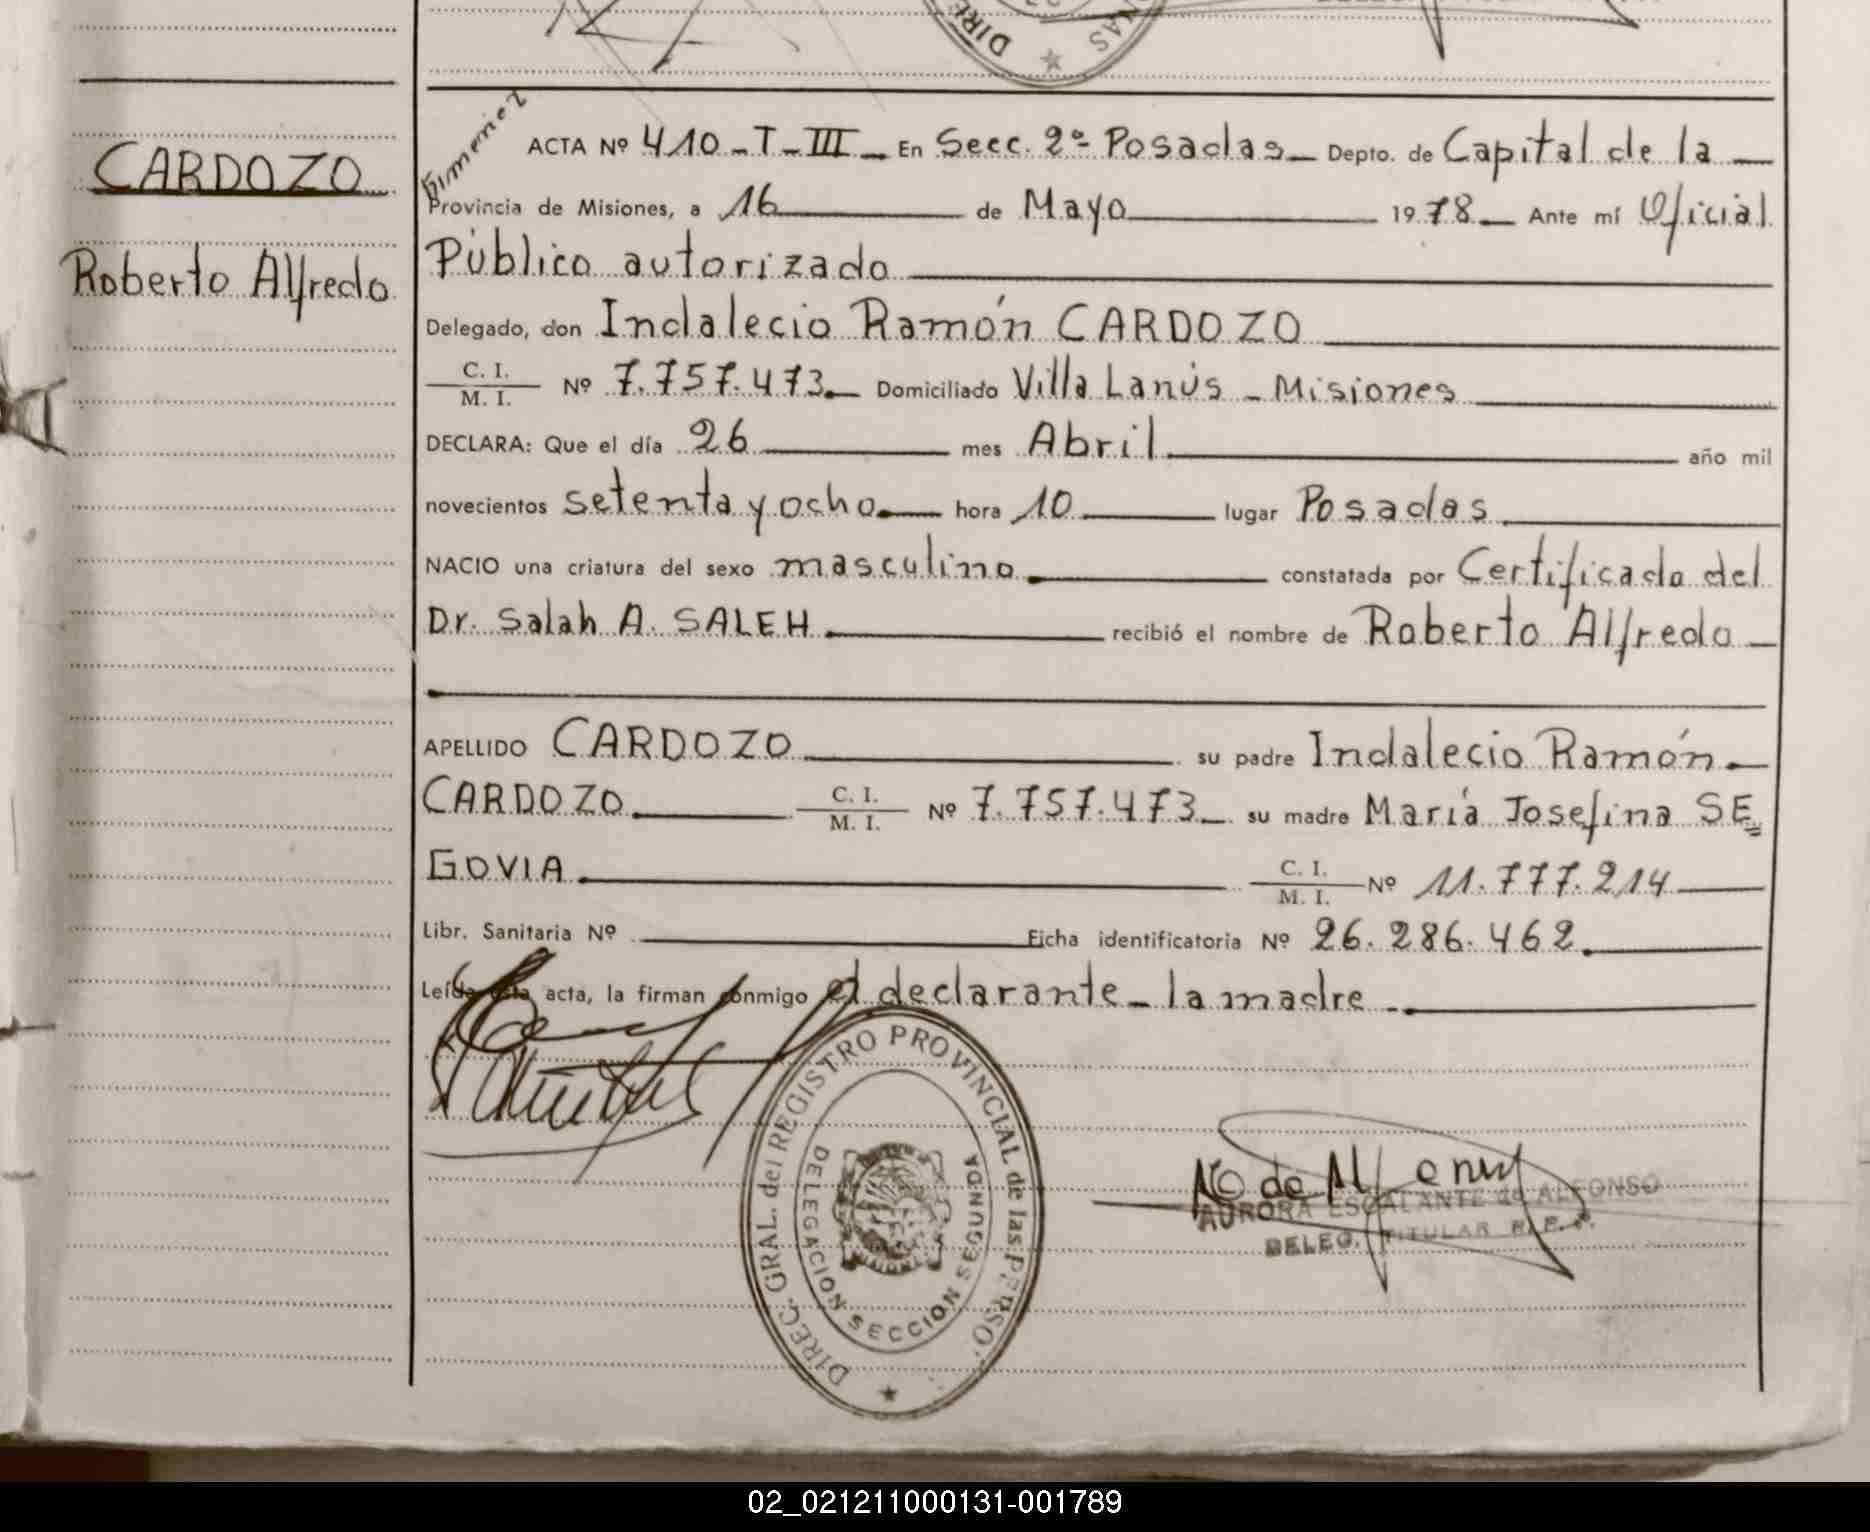 DIRE
NAS
CARDOZO
Roberto Alfredo
Gimenez
ACTA Nº 410-T-III- En Secc. 2º Posadas- Depto. de Capital de la
Provincia de Misiones, a 16 de Mayo 1978 Ante mí Oficial
Público autorizado
Delegado, don Indalecio Ramón CARDOZO
C. I.
M. I. Nº 7.757.473 Domiciliado Villa Lanús - Misiones
DECLARA: Que el día 26 mes Abril año mil
novecientos setenta y ocho hora 10 lugar Posadas
NACIO una criatura del sexo masculino constatada por Certificado del
Dr. Salah A. SALEH recibió el nombre de Roberto Alfredo
APELLIDO CARDOZO su padre Indalecio Ramón
CARDOZO C. I.
M. I. Nº 7.757.473 su madre María Josefina SE=
GOVIA C. I.
M. I. Nº 11.777.214
Libr. Sanitaria Nº Ficha identificatoria Nº 26.286.462
Leída esta acta, la firman conmigo el declarante - la madre
DIREC. GRAL. del REGISTRO PROVINCIAL de las PERSO.
DELEGACION SECCION SEGUNDA
AURORA ESCALANTE de ALFONSO
DELEG. TITULAR R. P. P.
02_021211000131-001789